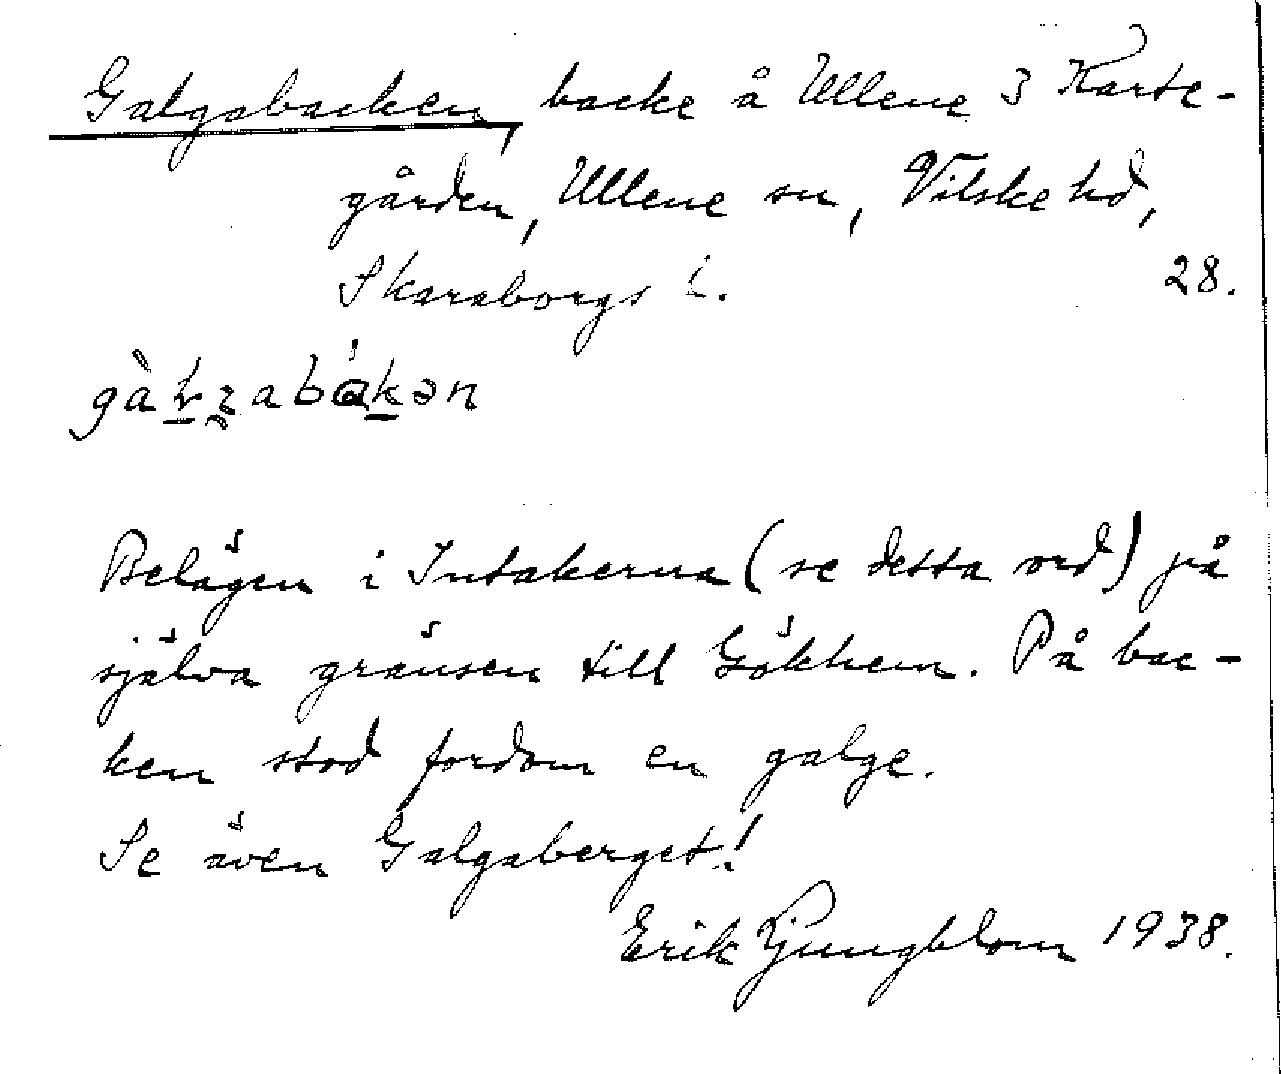 Galgabacken, backe å Ullene 3 Karste-
gården, Ullene sn, Vilske hd,
Skaraborgs l. 28.
Belägen i Intakerna (se detta ord) på
själva gränsen till Gökhem. På bac-
ken stod fordom en galge.
Se även Galgaberget!
Erik Ljungblom 1938.